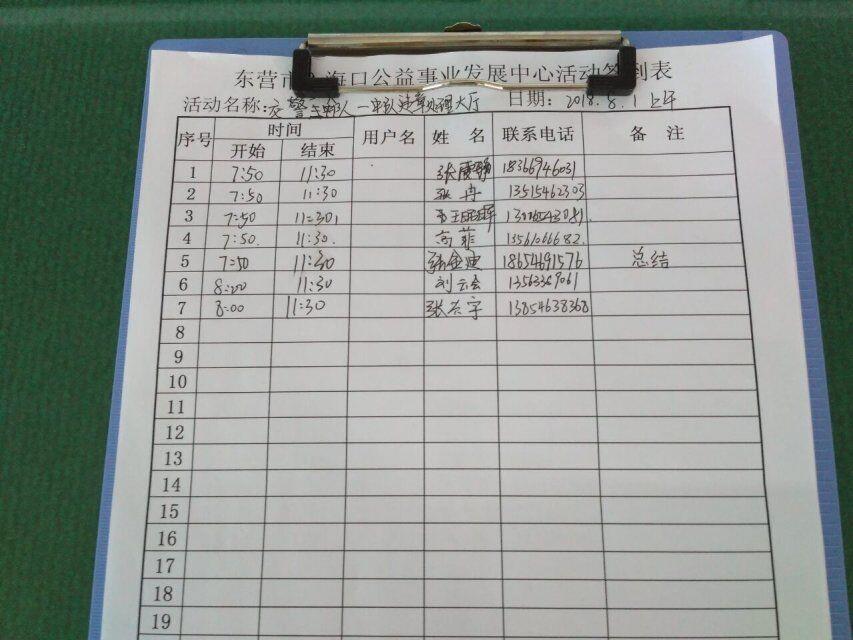 东营市 海口公益事业发展中心活动签到表
活动名称:交警三中队一中队违章处理大厅 日期: 2018.8.1 上午
序号 时间 用户名 姓 名 联系电话 备 注
开始 结束
1 7:50 11:30 18366946031
2 7:50 11:30 张冉 13515462303
3 7:50 11:30
4 7:50. 11:30. 高菲 13561066682.
5 7:50 11:30 18654691576 总结
6 8:00 11:30 刘云香 13563369061
7 8:00 11:30 张 宇 13854638368
8
9
10
11
12
13
14
15
16
17
18
19